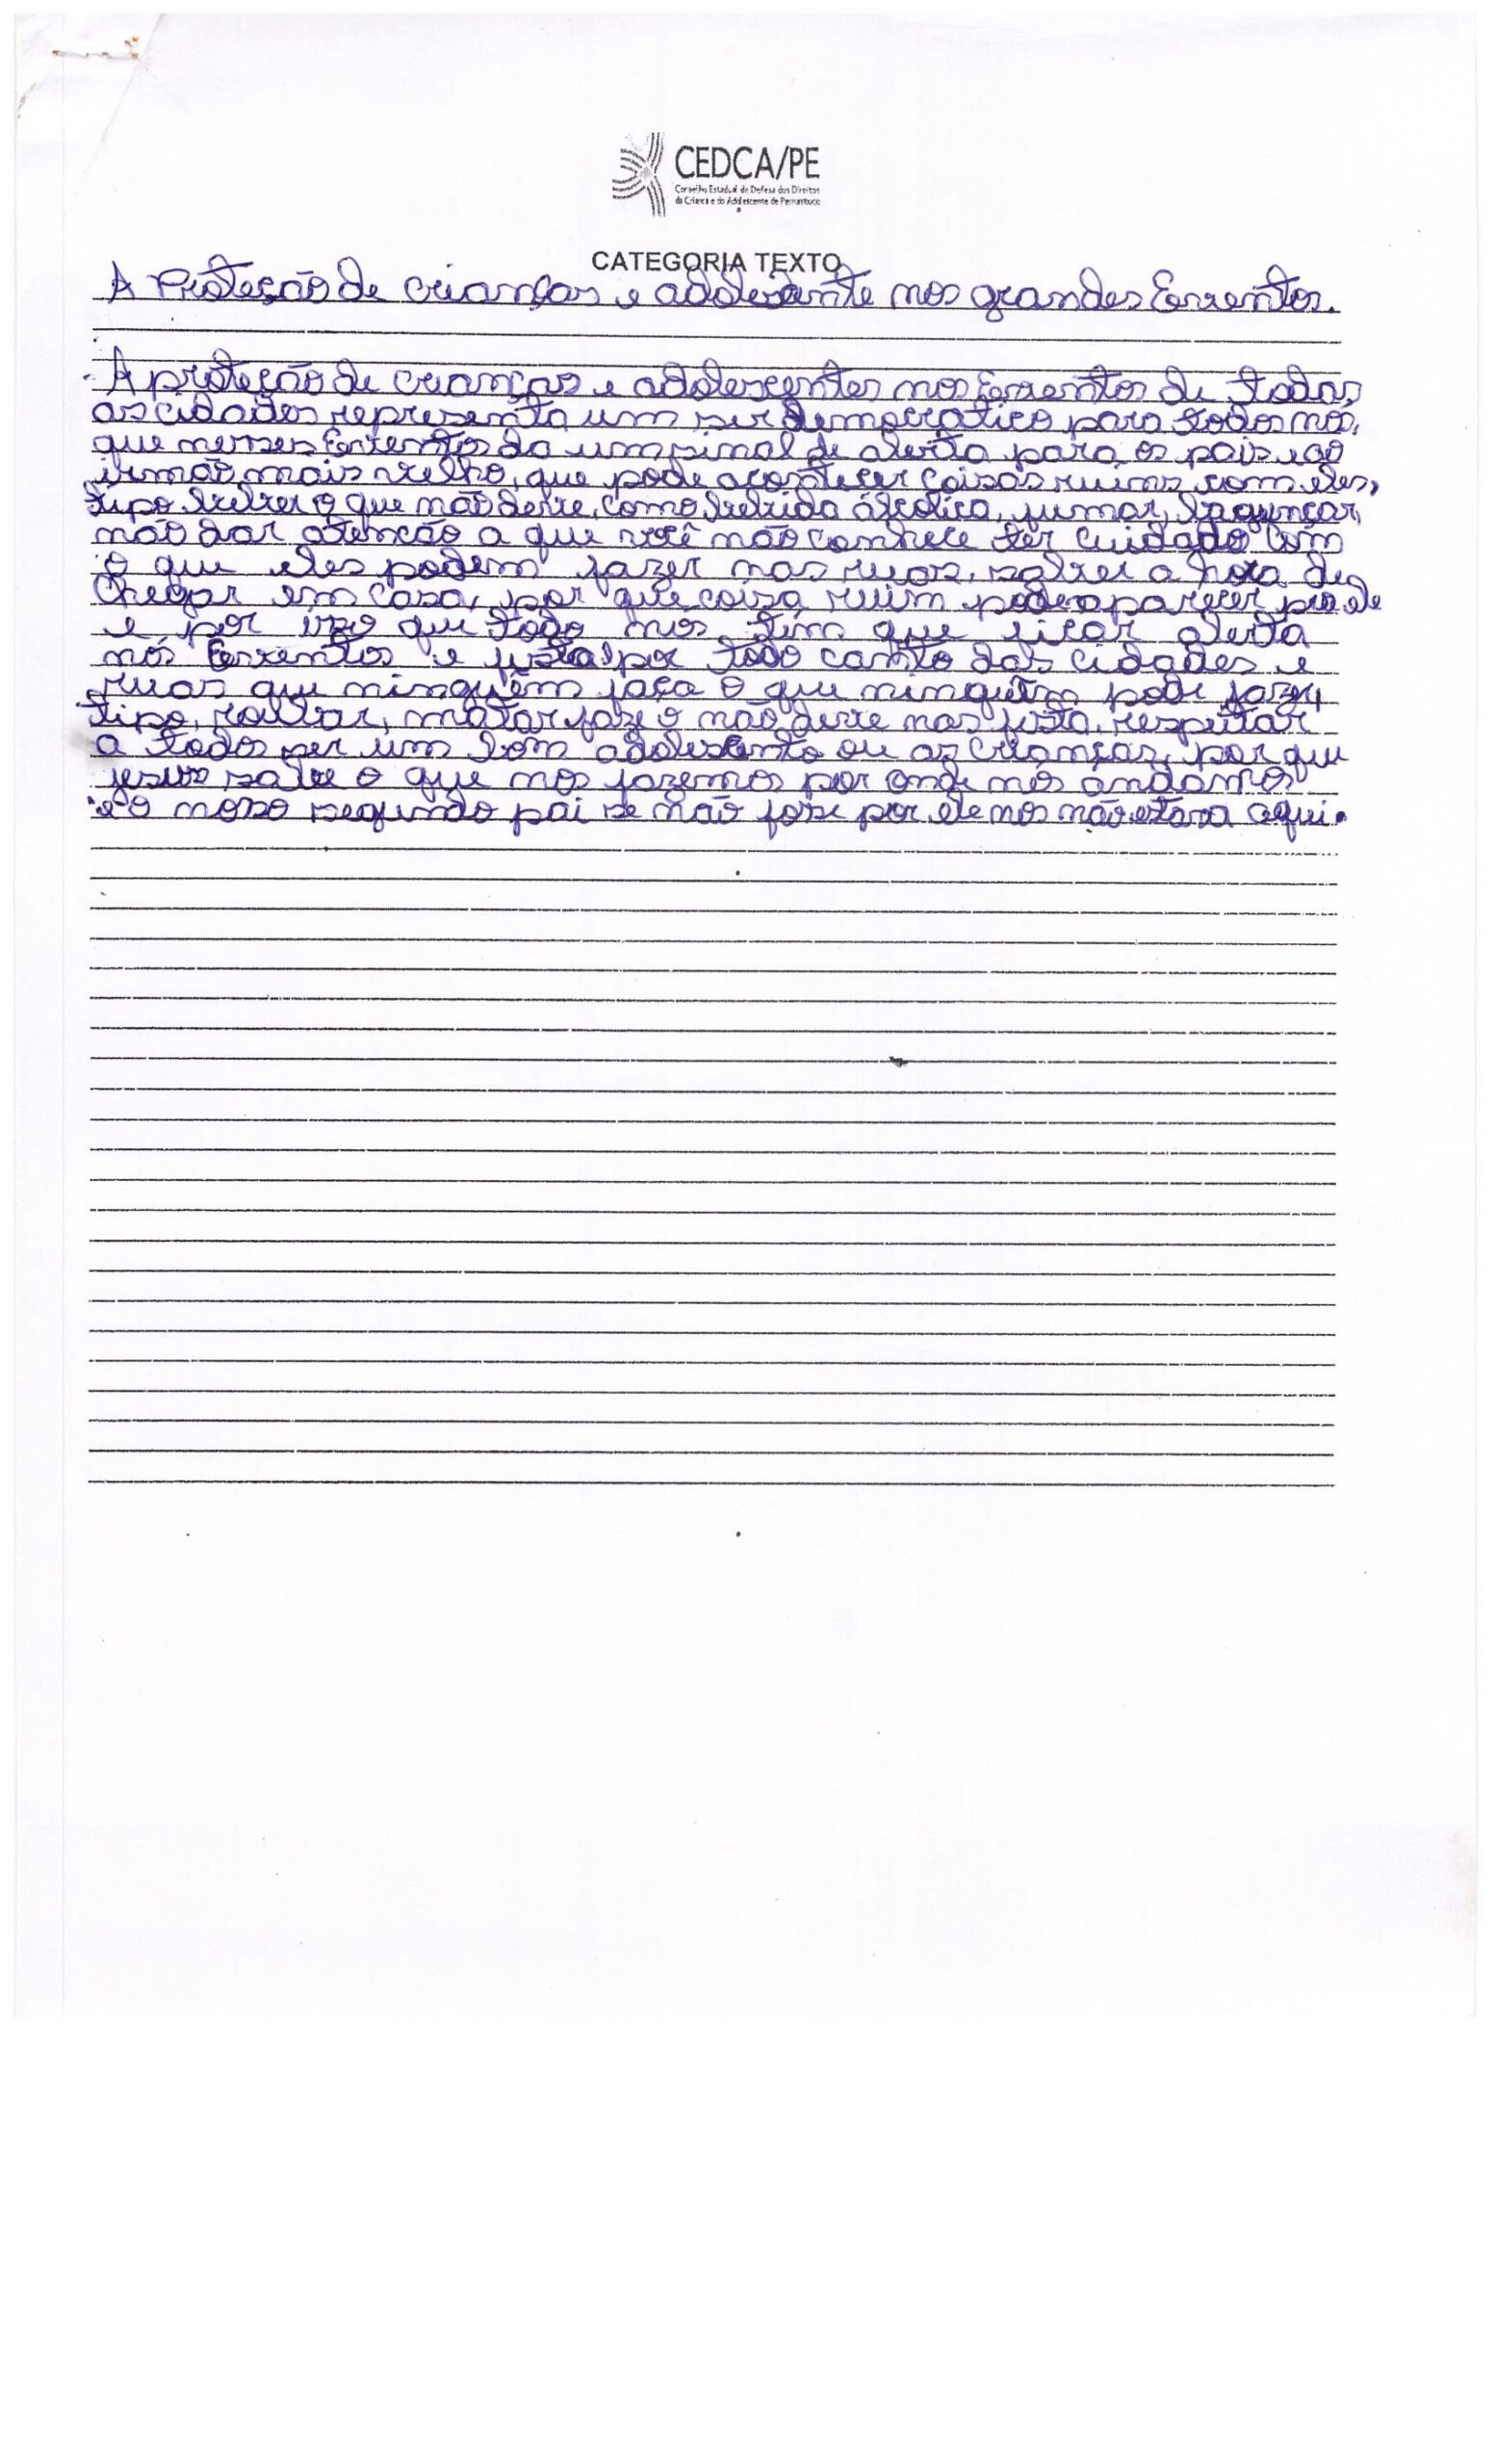 CEDCA/PE
Conselho Estadual de Defesa dos Direitos
da Criança e do Adolescente de Pernambuco
CATEGORIA TEXTO
A Proteção de crianças e adolesente nos grandes Eventos.
A proteção de crianças e adolescentes nos Eventos de todas
as cidades representa um ser democratico para todos nós,
que nesses Eventos da um sinal de alerta para os pais e ao
irmão mais velho, que pode acontecer coisas ruins com eles,
tipo beber o que não deve, como bebida álcolica, fumar, bagunçar,
não dar atenção a que você não conhece ter cuidado com
o que eles podem fazer nas ruas, saber a hora de
chegar em casa, por que coisa ruim pode aparecer pra ele
e por isso que todo nos tem que ficar alerta
nós Eventos e festa por todo canto das cidades e
ruas que ninguêm faça o que ninguêm pode fazer,
tipo, roubar, matar faze o não deve nas festa, respeitar
a todos ser um bom adolesento ou as crianças, por que
jesus sabe o que nos fazemos por onde nós andamos
e o noso segundo pai se não fose por ele nos não estara aqui.